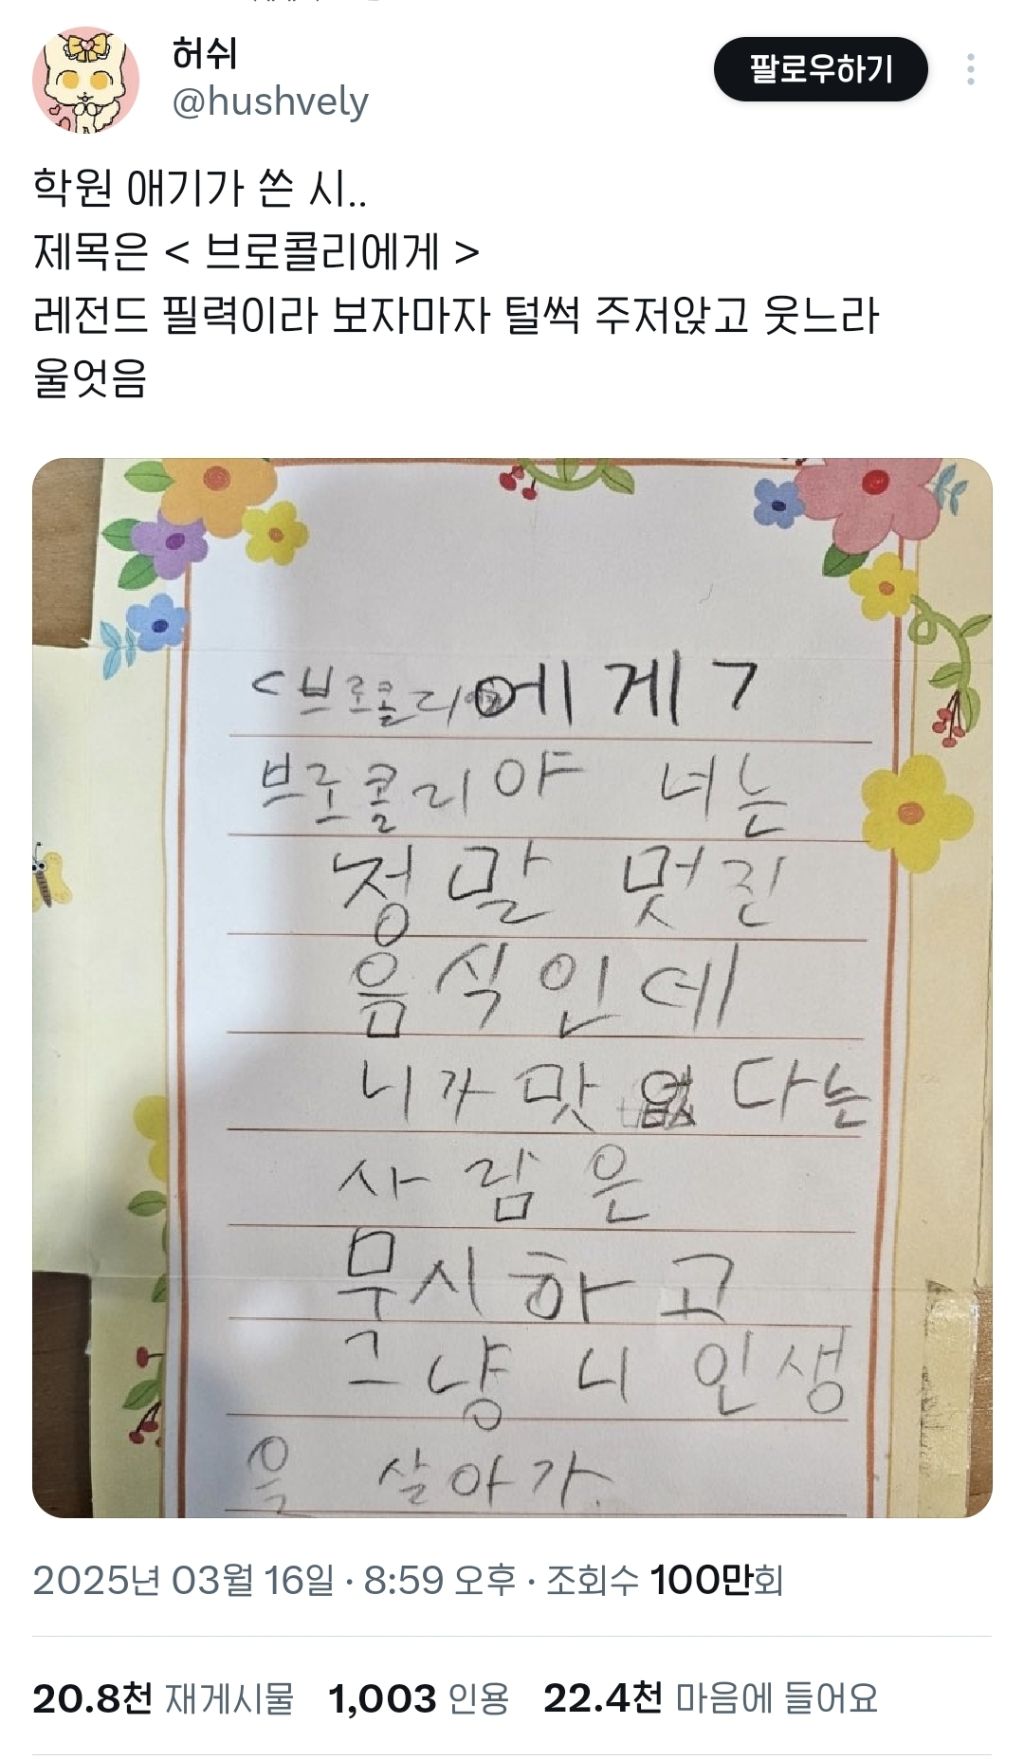 허쉬
팔로우하기
@hushvely
학원 애기가 쓴 시..
제목은 < 브로콜리에게 >
레전드 필력이라 보자마자 털썩 주저앉고 웃느라
울엇음
<브로콜리에게7
브로콜리야 너는
정말 멋진
음식인데
니가 맛없다는
사람은
무시하고
그냥 니 인생
을 살아가.
2025년 03월 16일 · 8:59 오후 · 조회수 100만회
20.8천 재게시물 1,003 인용 22.4천 마음에 들어요